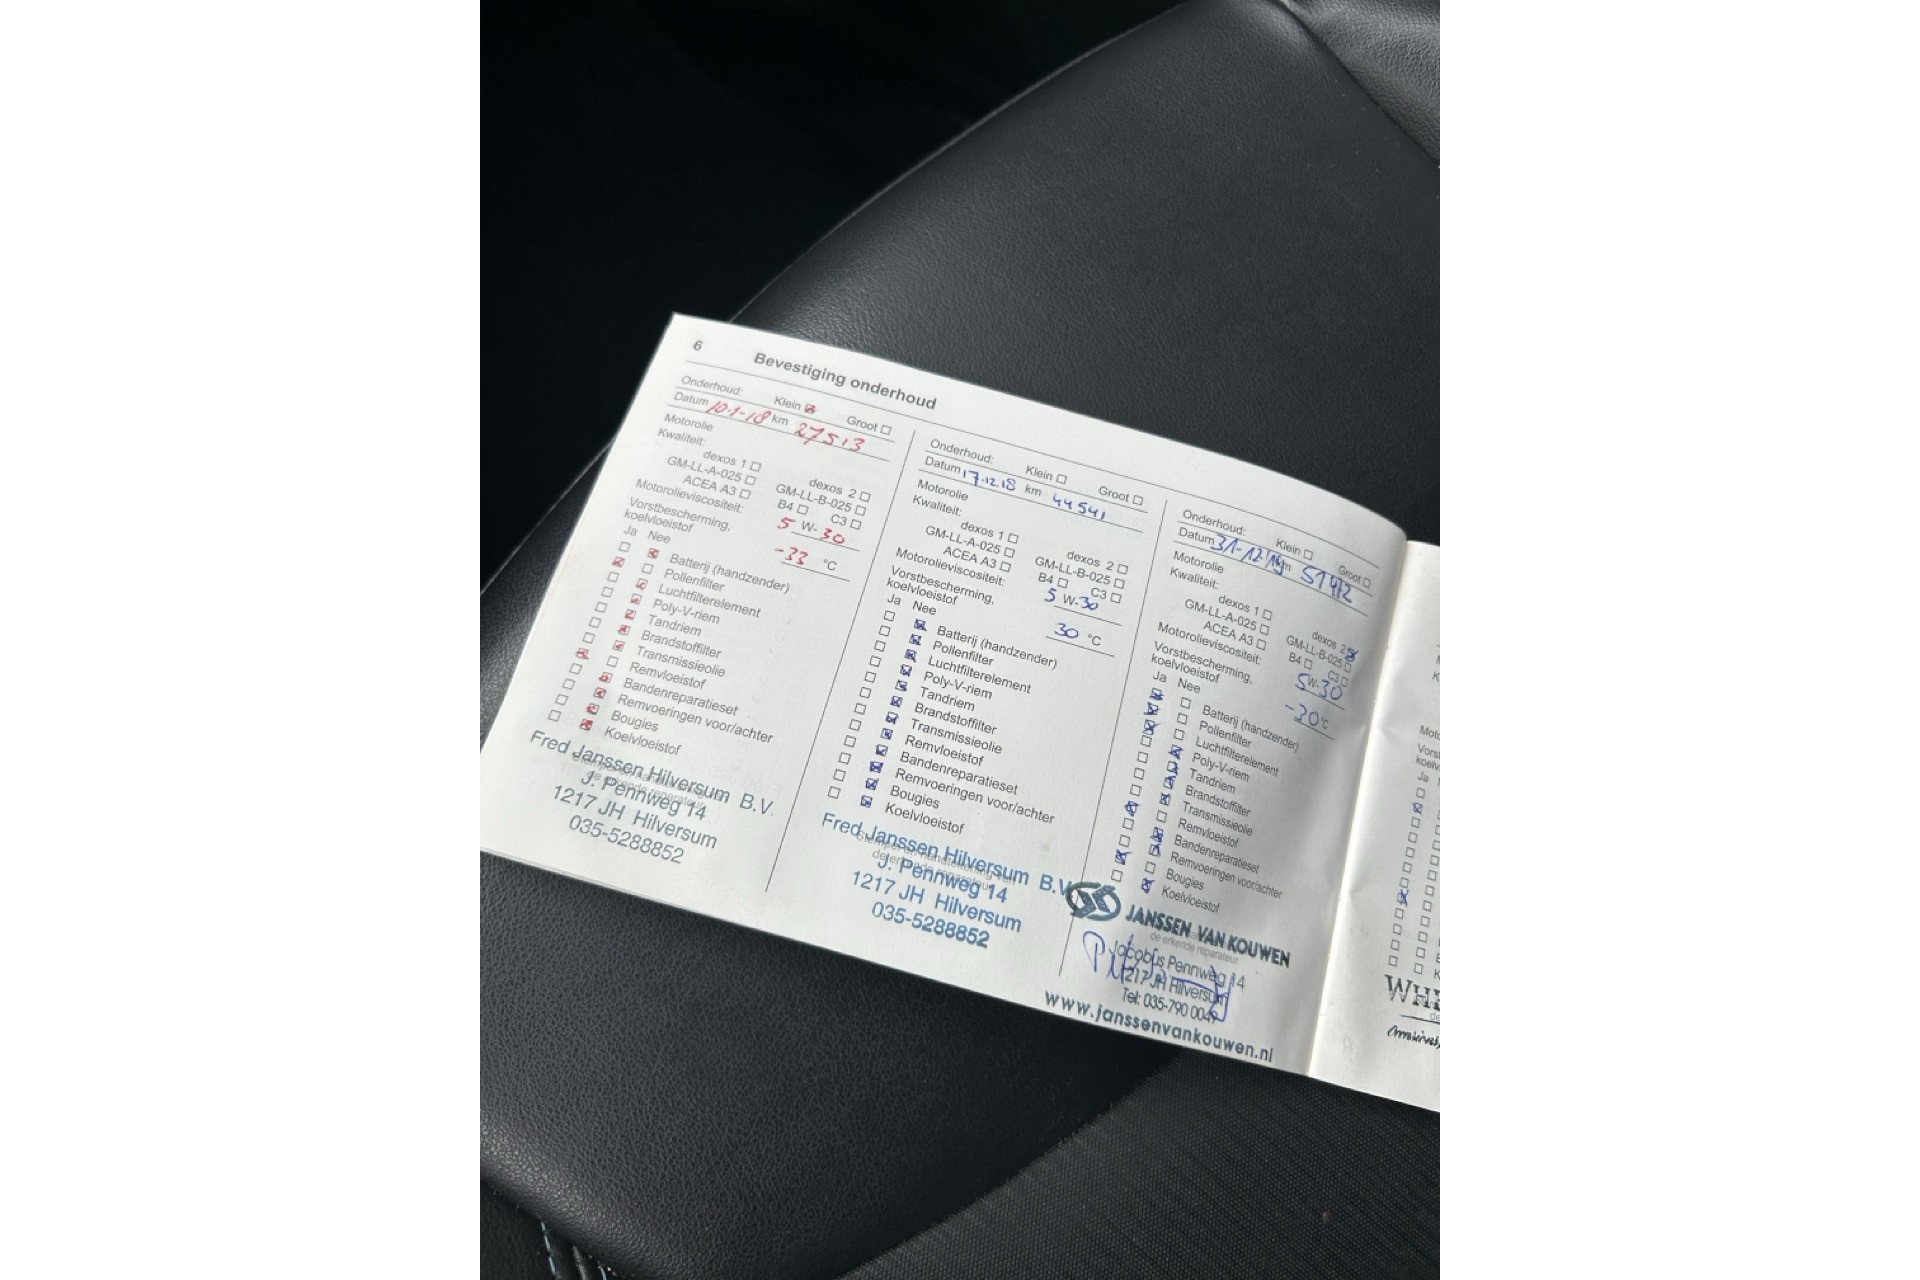 6 Bevestiging onderhoud
Onderhoud: Klein Groot
Datum 10-1-18 km 27513
Motorolie
Kwaliteit:
dexos 1 dexos 2
GM-LL-A-025 GM-LL-B-025
ACEA A3 B4 C3
Motorolieviscositeit: 5 W-30
Vorstbescherming,
koelvloeistof -33 °C
Ja Nee
Batterij (handzender)
Pollenfilter
Luchtfilterelement
Poly-V-riem
Tandriem
Brandstoffilter
Transmissieolie
Remvloeistof
Bandenreparatieset
Remvoeringen voor/achter
Bougies
Koelvloeistof
Fred Janssen Hilversum B.V.
J. Pennweg 14
1217 JH Hilversum
035-5288852
Onderhoud: Klein Groot
Datum 17.12.18 km 44541
Motorolie
Kwaliteit:
dexos 1 dexos 2
GM-LL-A-025 GM-LL-B-025
ACEA A3 B4 C3
Motorolieviscositeit: 5 W-30
Vorstbescherming,
koelvloeistof 30 °C
Ja Nee
Batterij (handzender)
Pollenfilter
Luchtfilterelement
Poly-V-riem
Tandriem
Brandstoffilter
Transmissieolie
Remvloeistof
Bandenreparatieset
Remvoeringen voor/achter
Bougies
Koelvloeistof
Stempel en handtekening van
de erkende reparateur
Fred Janssen Hilversum B.V.
J. Pennweg 14
1217 JH Hilversum
035-5288852
Onderhoud: Klein Groot
Datum 31-12-19 km 51472
Motorolie
Kwaliteit:
dexos 1 dexos 2
GM-LL-A-025 GM-LL-B-025
ACEA A3 B4 C3
Motorolieviscositeit: 5 W-30
Vorstbescherming,
koelvloeistof -30 °C
Ja Nee
Batterij (handzender)
Pollenfilter
Luchtfilterelement
Poly-V-riem
Tandriem
Brandstoffilter
Transmissieolie
Remvloeistof
Bandenreparatieset
Remvoeringen voor/achter
Bougies
Koelvloeistof
JANSSEN VAN KOUWEN
de erkende reparateur
Jacobus Pennweg 14
1217 JH Hilversum
Tel: 035-790 0049
www.janssenvankouwen.nl
Ja
WHE